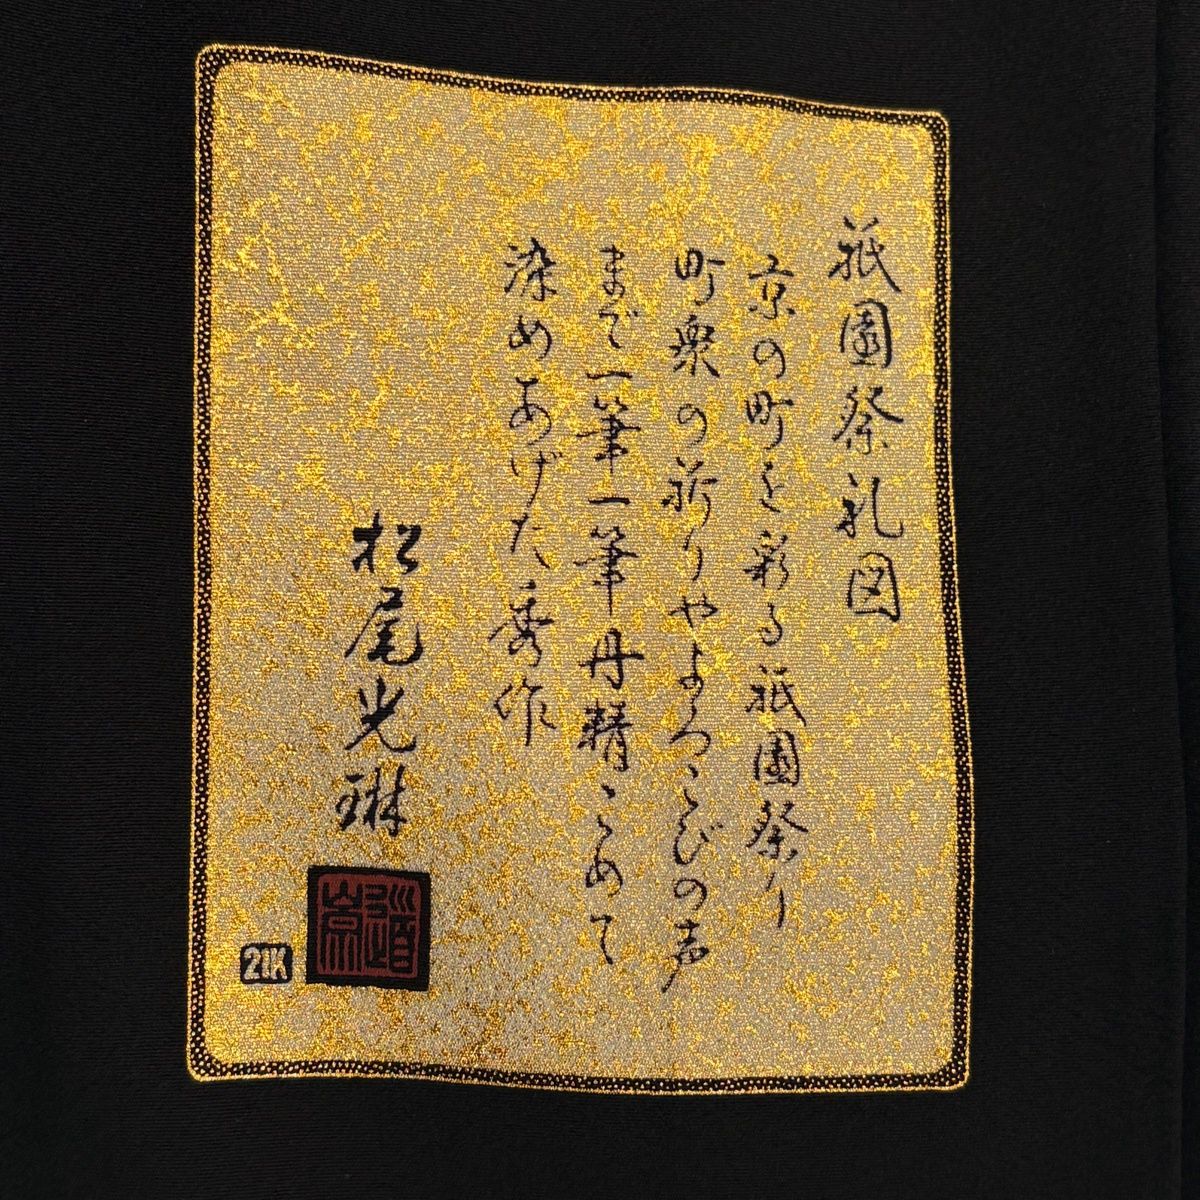 祇園祭礼図
京の町を彩る祇園祭り
町衆の祈りやよろこびの声
まで一筆一筆丹精こめて
染めあげた秀作
松尾光琳
21K